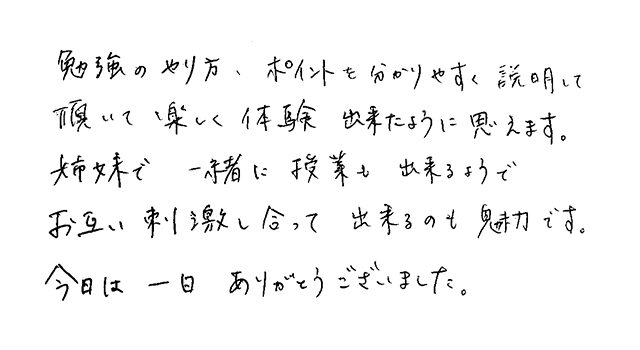 勉強のやり方、ポイントを分かりやすく説明して
頂いて楽しく体験出来たように思えます。
姉妹で一緒に授業も出来るようで
お互い刺激し合って出来るのも魅力です。
今日は一日ありがとうございました。